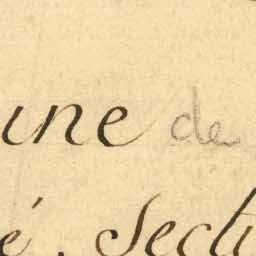 ine de
é. Secti